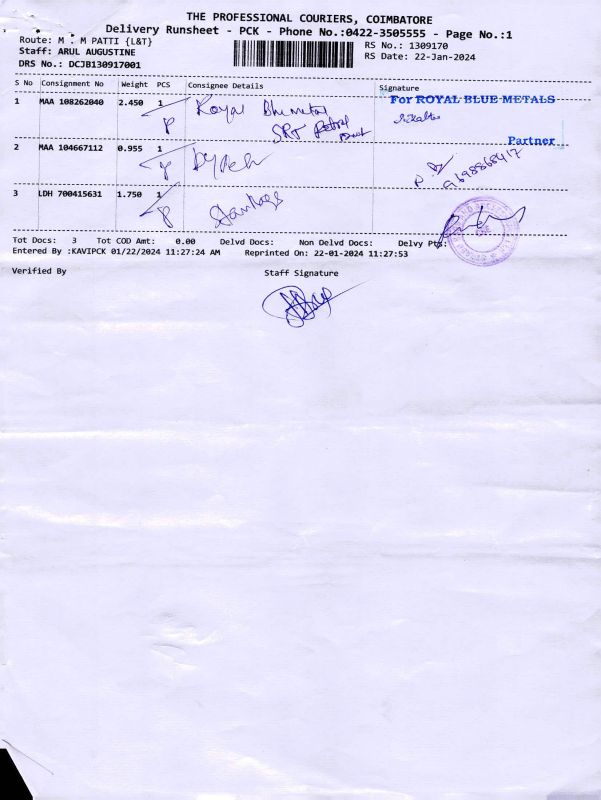 THE PROFESSIONAL COURIERS, COIMBATORE
Delivery Runsheet - PCK - Phone No.:0422-3505555 - Page No.:1
Route: M . M PATTI {L&T}
RS No.: 1309170
Staff: ARUL AUGUSTINE
RS Date: 22-Jan-2024
DRS No.: DCJB130917001
S No Consignment No Weight PCS Consignee Details Signature
1 MAA 108262040 2.450 1 Royal Blue metal
For ROYAL BLUE METALS
SRJ
Partner
2 MAA 104667112 0.955 1
9698868417
3 LDH 700415631 1.750 1
Tot Docs: 3 Tot COD Amt: 0.00 Delvd Docs: Non Delvd Docs: Delvy Pts:
Entered By :KAVIPCK 01/22/2024 11:27:24 AM Reprinted On: 22-01-2024 11:27:53
Verified By Staff Signature